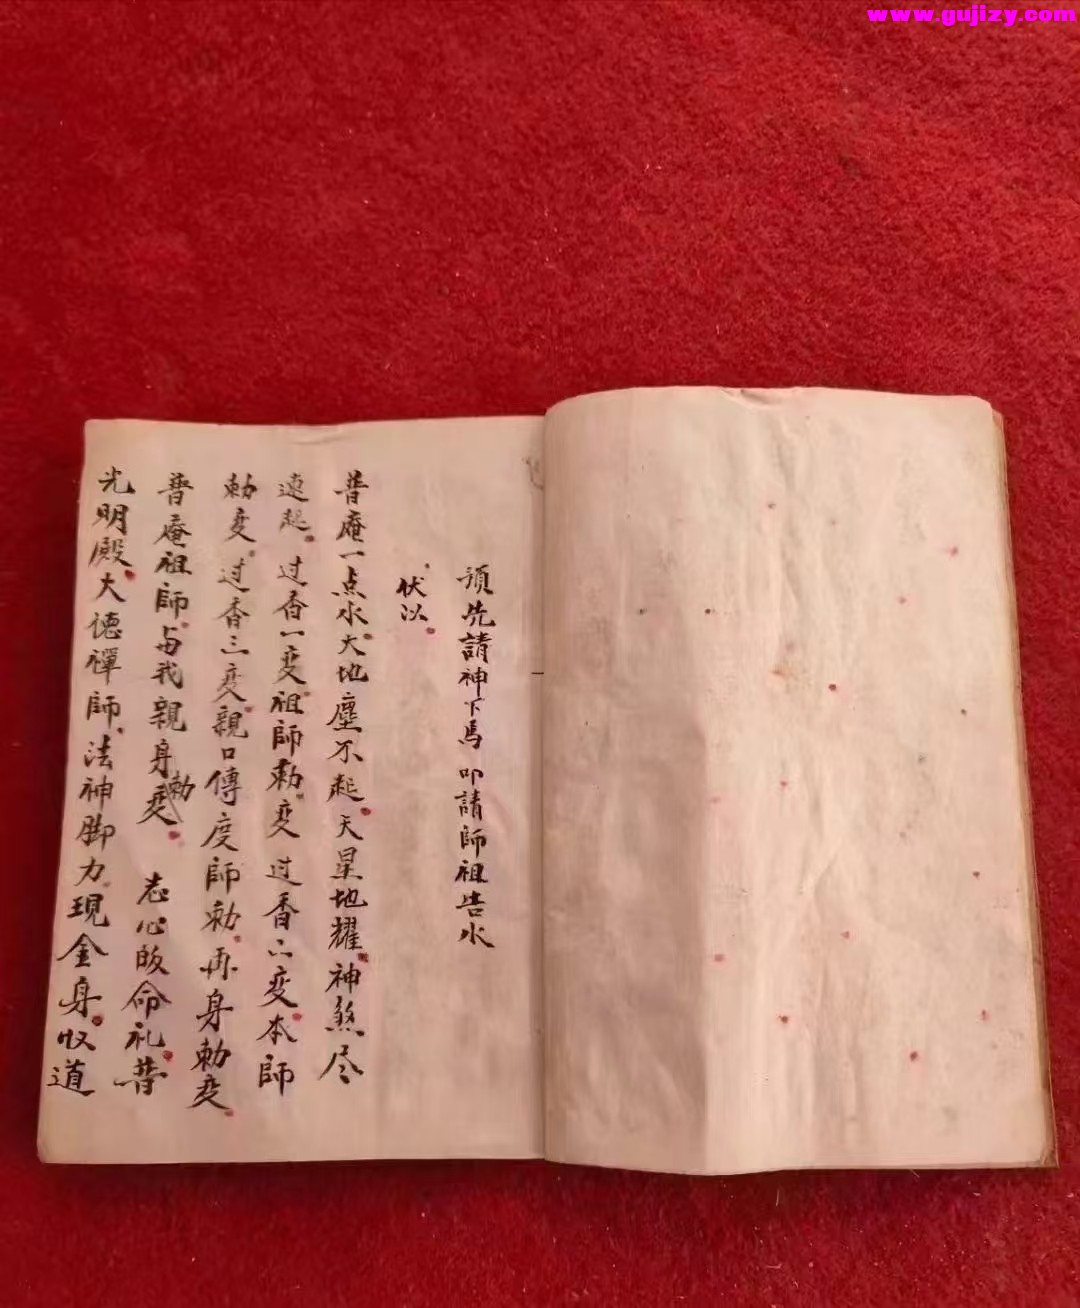 www.gujizy.com
預先請神下馬 叩請師祖告水
伏以
普庵一点水大地塵不起天星地耀神煞尽
速起 过香一变祖師勅变 过香二变本師
勅变过香三变親口傳度師勅再身勅变
普庵祖師与我親身勅变 志心皈命礼普
光明殿大德禪師法神脚力現金身收道